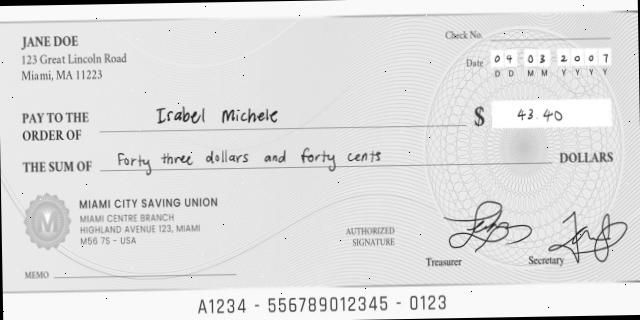 JANE DOE
123 Great Lincoln Road
Miami, MA 11223
Check No.
Date 04 03 2007
D D M M Y Y Y Y
PAY TO THE
ORDER OF Isabel Michele $ 43.40
THE SUM OF Forty three dollars and forty cents DOLLARS
M
MIAMI CITY SAVING UNION
MIAMI CENTRE BRANCH
HIGHLAND AVENUE 123, MIAMI
M56 7S - USA
AUTHORIZED
SIGNATURE
Treasurer
Secretary
MEMO
A1234 - 556789012345 - 0123